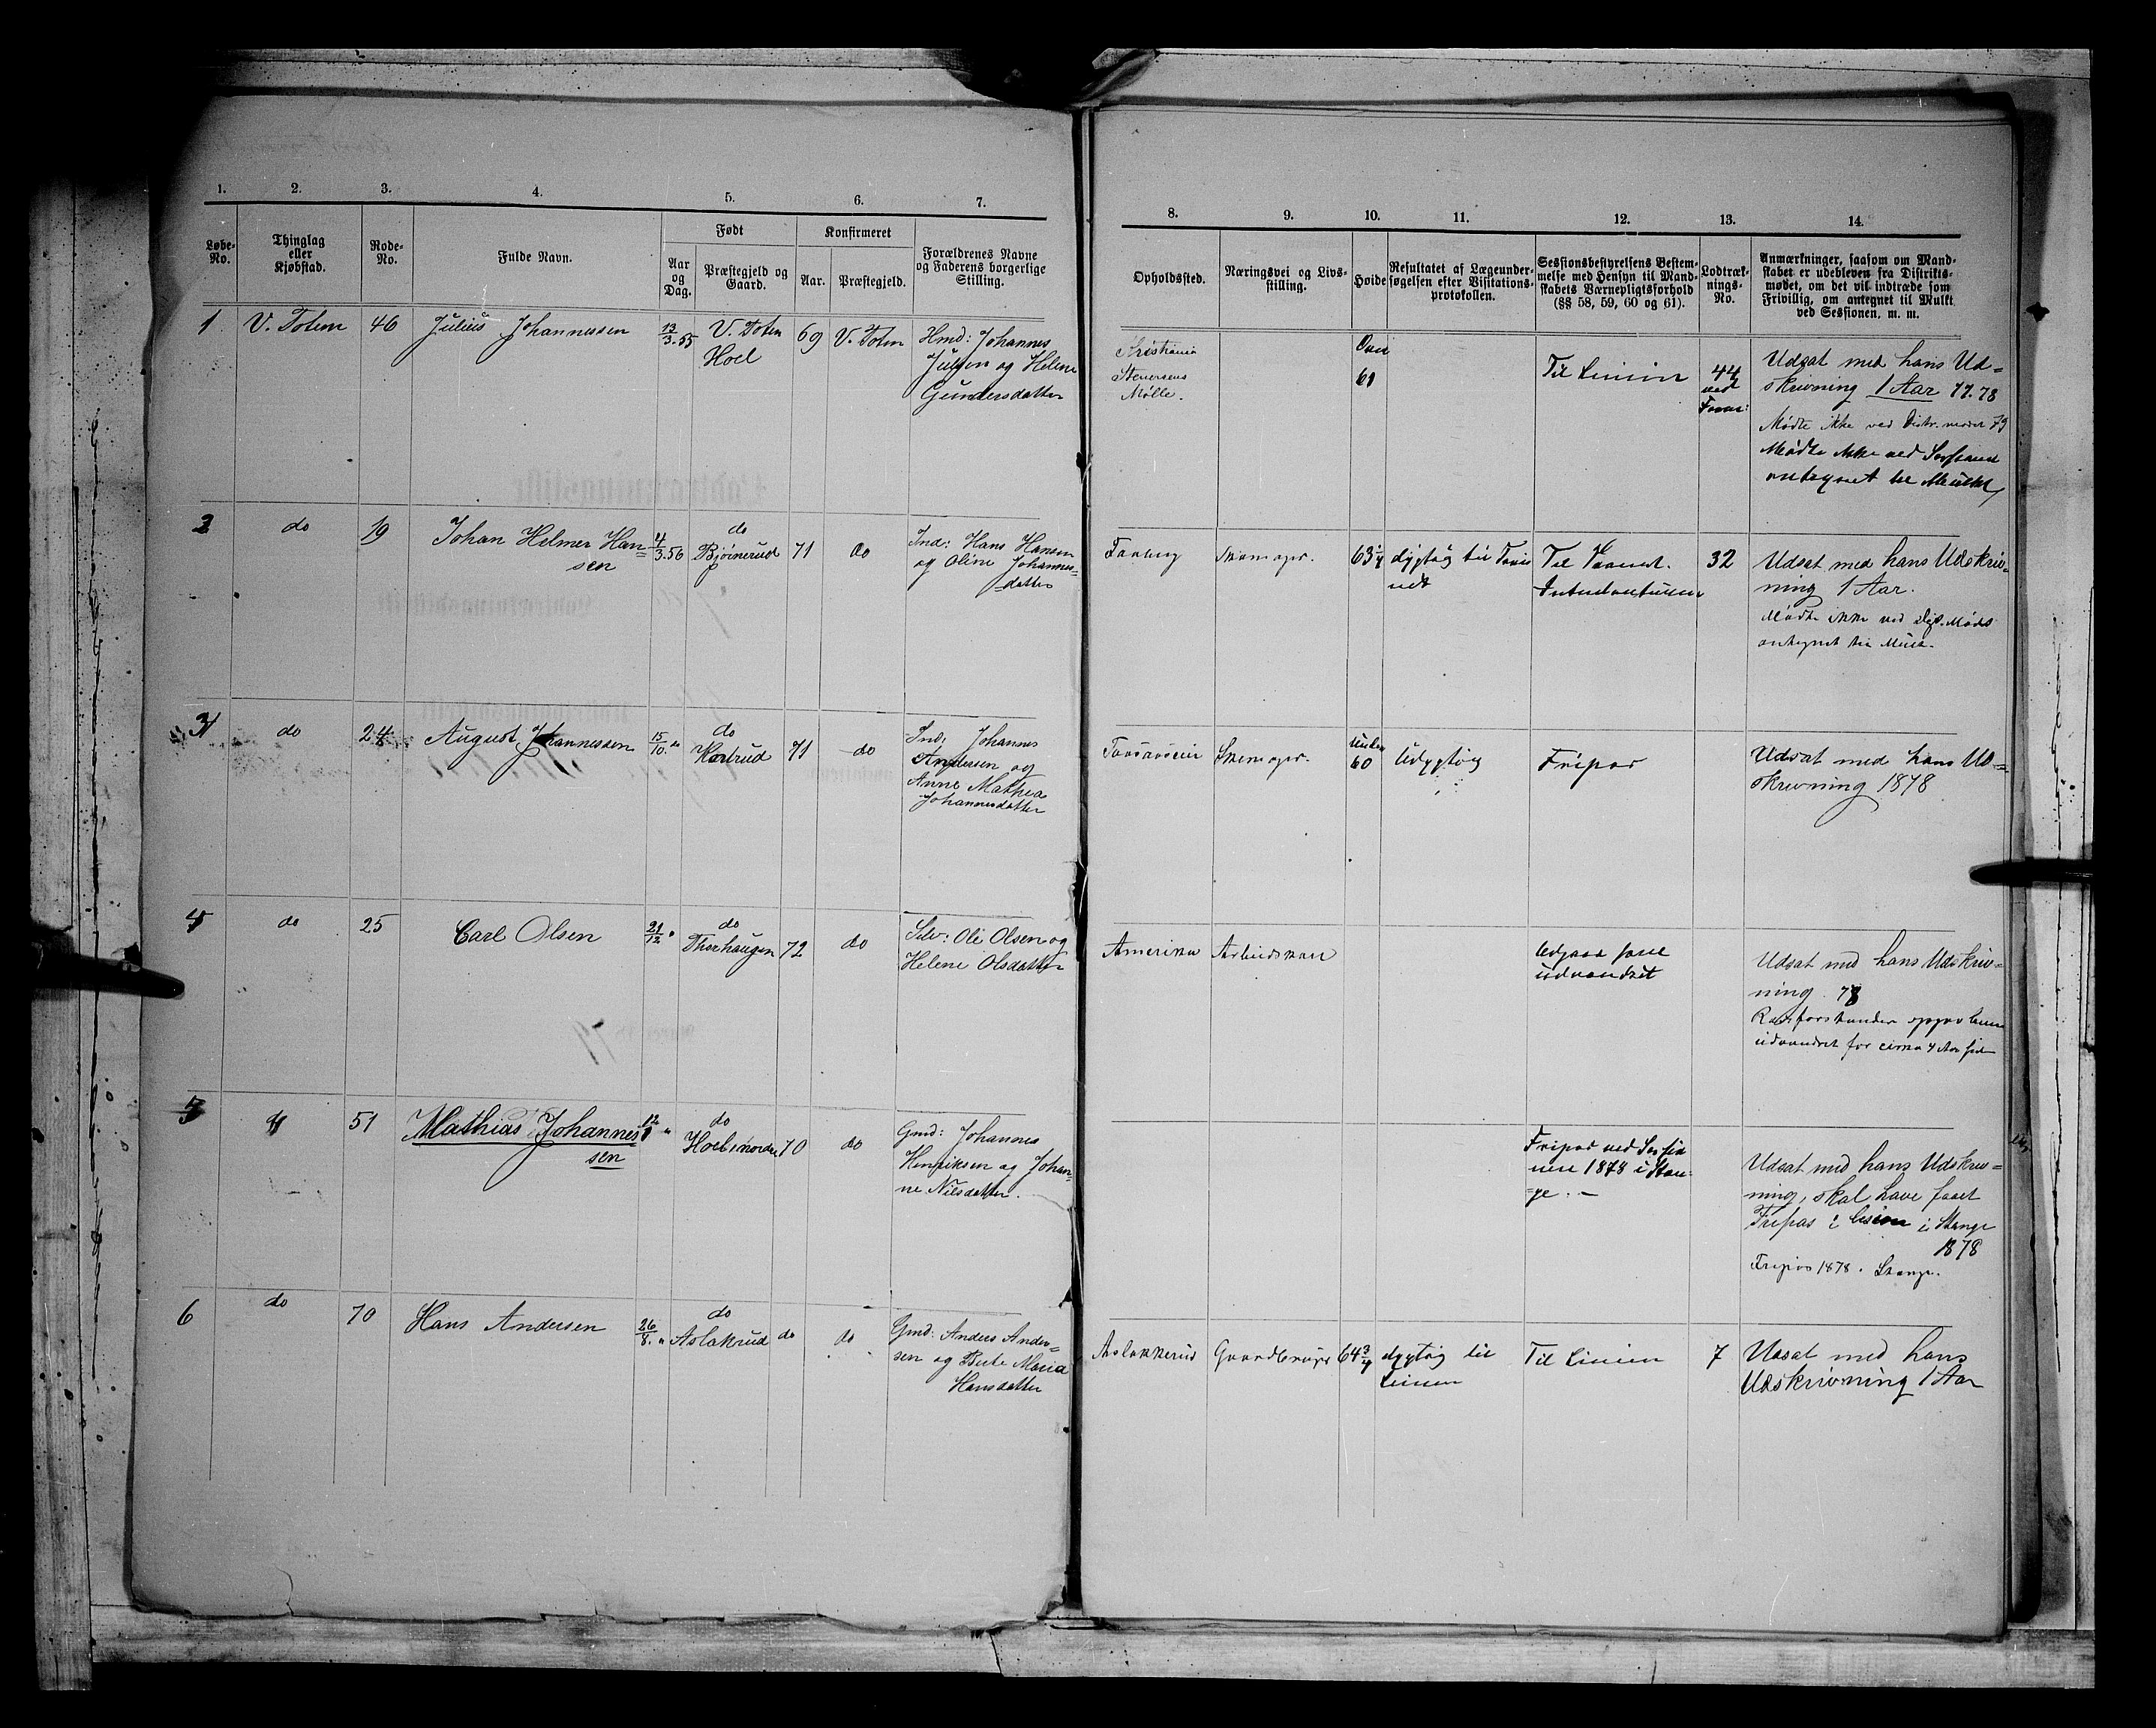 1. 2. 3. 4. 5. 6. 7.
Løbe-No. Thinglag eller Kjøbstad. Rode-No. Fulde Navn. Født Aar og Dag. Præstegjeld og Gaard. Konfirmeret Aar. Præstegjeld. Forældrenes Navne og Faderens borgerlige Stilling.
8. 9. 10. 11. 12. 13. 14.
Opholdssted. Næringsvei og Livsstilling. Høide Resultatet af Lægeundersøgelsen efter Visitationsprotokollen. Sessionsbestyrelsens Bestemmelse med Hensyn til Mandskabets Værnepligtsforhold (§§ 58, 59, 60 og 61). Lodtræknings-No. Anmærkninger, saasom om Mandskabet er udebleven fra Distriktsmødet, om det vil indtræde som Frivillig, om antegnet til Mulkt ved Sessionen, m. m.
1 V. Toten 46 Julius Johannessen 13/3.55 V. Toten 69 V. Toten Hmd: Johannes
Hoel
Julsen og Helene
Gundersdatter
Kristiania
Stenersens
Mølle.
Over
61
Til Linien
44
ved
Udsat med hans Ud=
skrivning 1 Aar 77.78
Mødte ikke ved Distr. mødet 79
Mødte ikke ved Sessionen
antegnet til Mulkt
2 do 19 Johan Helmer Han=
sen
4/3.56 do
Bjørnerud 71 do
Ind: Hans Hansen
og Oline Johannes=
datter
Faaberg Skomager. 63 1/4 dygtig til
Til
Intendanturen
32
Udsat med hans Udskriv=
ning 1 Aar.
Mødte ikke ved
antegnet til Mulkt.
3 do 24 August Johannessen 15/10 " do
Karlrud 71 do
Ind: Johannes
Andersen og
Anne Mathea
Johannesdatter
Skomager. Under
60
Udygtig Fripas
Udsat med hans Ud=
skrivning 1878
4 do 25 Carl Olsen 21/12 " do
Thorhaugen 72 do
Selv: Ole Olsen og
Helene Olsdatter
Amerika Arbeidsmand
Udgaar som
udvandret
Udsat med hans Udskriv=
ning 78
Rodeforstander
udvandret for cirka 4 Aar siden
5 " 51 Mathias Johannes
sen
do
Hoel nordre 70 do
Gmd: Johannes
Henriksen og Johan=
ne Nilsdatter.
Fripas ved Sessio
nen 1878 i Stan=
ge. –
Udsat med hans Udskriv=
ning, skal have faaet
Fripas i i Stange
1878
Fripas 1878. Stange.
6 do 70 Hans Andersen 26/8. " do
Aslakrud do do
Gmd: Anders Ander=
sen og Berte Maria
Hansdatter
Aslakkerud Gaardbruger 64 3/4 dygtig til
Linien
Til Linien 7
Udsat med hans
Udskrivning 1 Aar